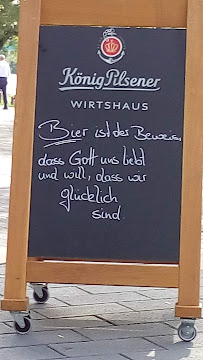 König Pilsener
WIRTSHAUS
Bier ist der Beweis
dass Gott uns liebt
und will, dass wir
glücklich
sind